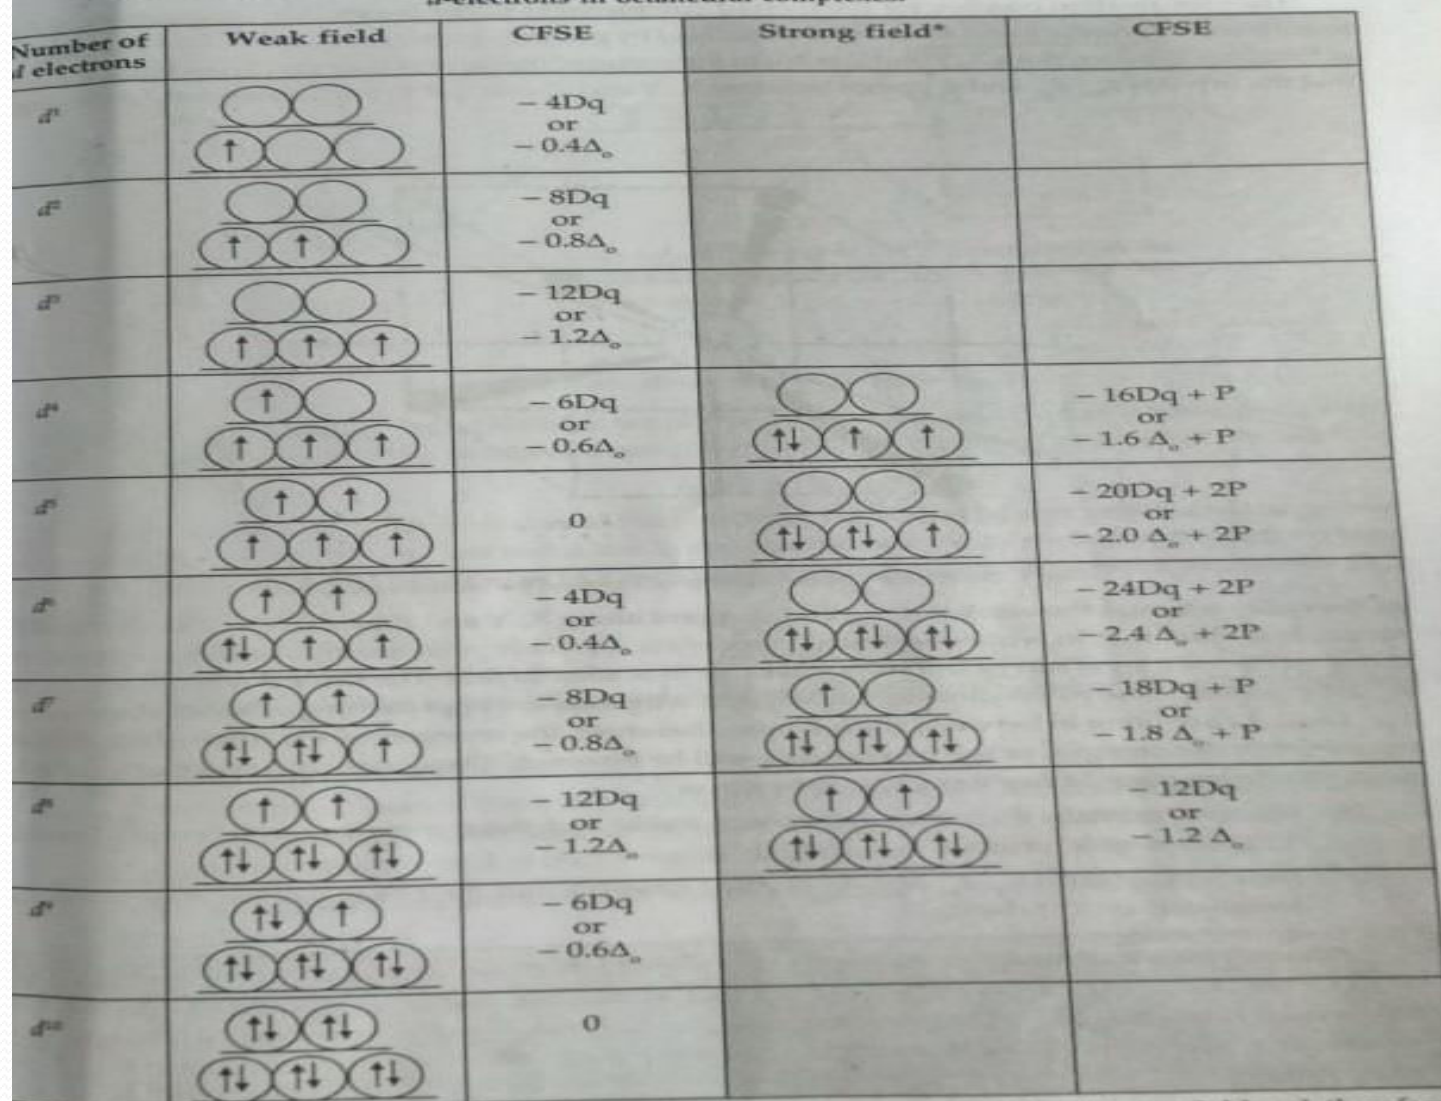 d-electrons in octahedral complexes.
Number of
d electrons
Weak field
CFSE
Strong field*
CFSE
d¹
↑
− 4Dq
or
− 0.4Δₒ
d²
↑ ↑
− 8Dq
or
− 0.8Δₒ
d³
↑ ↑ ↑
− 12Dq
or
− 1.2Δₒ
d⁴
↑
↑ ↑ ↑
− 6Dq
or
− 0.6Δₒ
↑↓ ↑ ↑
− 16Dq + P
or
− 1.6 Δₒ + P
d⁵
↑ ↑
↑ ↑ ↑
0
↑↓ ↑↓ ↑
− 20Dq + 2P
or
− 2.0 Δₒ + 2P
d⁶
↑ ↑
↑↓ ↑ ↑
− 4Dq
or
− 0.4Δₒ
↑↓ ↑↓ ↑↓
− 24Dq + 2P
or
− 2.4 Δₒ + 2P
d⁷
↑ ↑
↑↓ ↑↓ ↑
− 8Dq
or
− 0.8Δₒ
↑
↑↓ ↑↓ ↑↓
− 18Dq + P
or
− 1.8 Δₒ + P
d⁸
↑ ↑
↑↓ ↑↓ ↑↓
− 12Dq
or
− 1.2Δₒ
↑ ↑
↑↓ ↑↓ ↑↓
− 12Dq
or
− 1.2 Δₒ
d⁹
↑↓ ↑
↑↓ ↑↓ ↑↓
− 6Dq
or
− 0.6Δₒ
d¹⁰
↑↓ ↑↓
↑↓ ↑↓ ↑↓
0